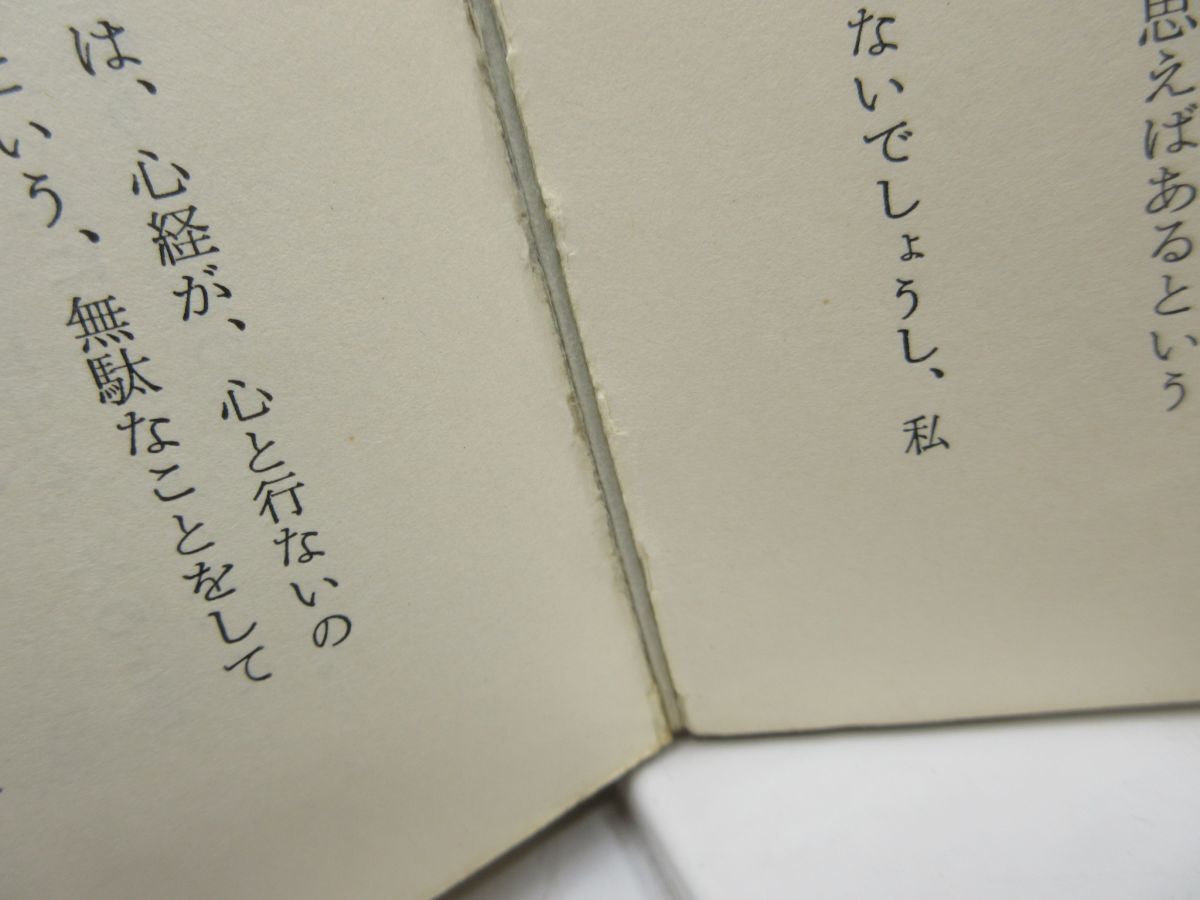 思えばあるという
ないでしょうし、私
は、心経が、心と行ないの
という、無駄なことをして